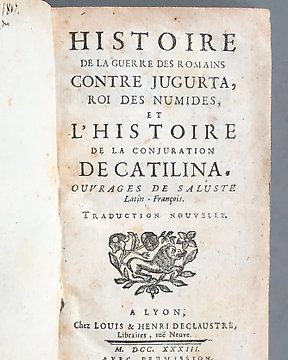 HISTOIRE
DE LA GUERRE DES ROMAINS
CONTRE JUGURTA,
ROI DES NUMIDES,
ET
L'HISTOIRE
DE LA CONJURATION
DE CATILINA.
OUVRAGES DE SALUSTE
Latin - François.
TRADUCTION NOUVELLE.
A LYON,
Chez LOUIS & HENRI DECLAUSTRE,
Libraires, ruë Neuve.
M. DCC. XXXIII.
AVEC PERMISSION.